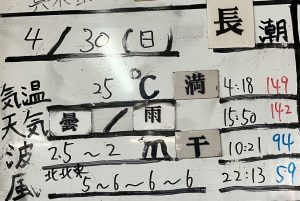 4/30(日) 長潮
気温 25℃ 満 4:18 149
天気 曇/雨 15:50 142
波 2.5～2m 干 10:21 94
風 北北東 5～6～6～6 22:13 59